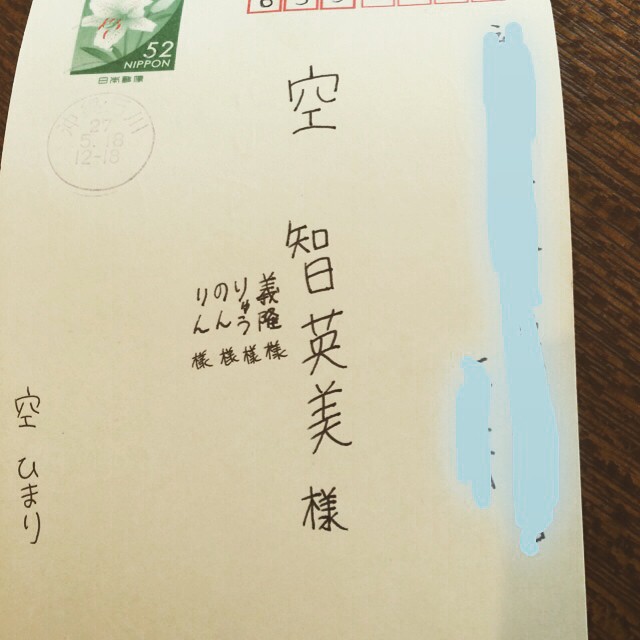 52
NIPPON
日本郵便
27
12-18
空 智英美 様
義隆 様
りゅう 様
のん 様
りん 様
空 ひまり